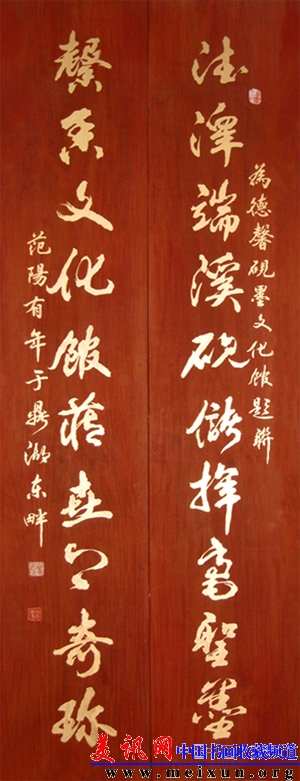 德澤端溪硯儲揮聖墨
為德馨硯墨文化館題聯
馨香文化館藏奇珍
范陽有年于鼎湖東畔
美讯网 中国书画收藏频道
www.meixun.org